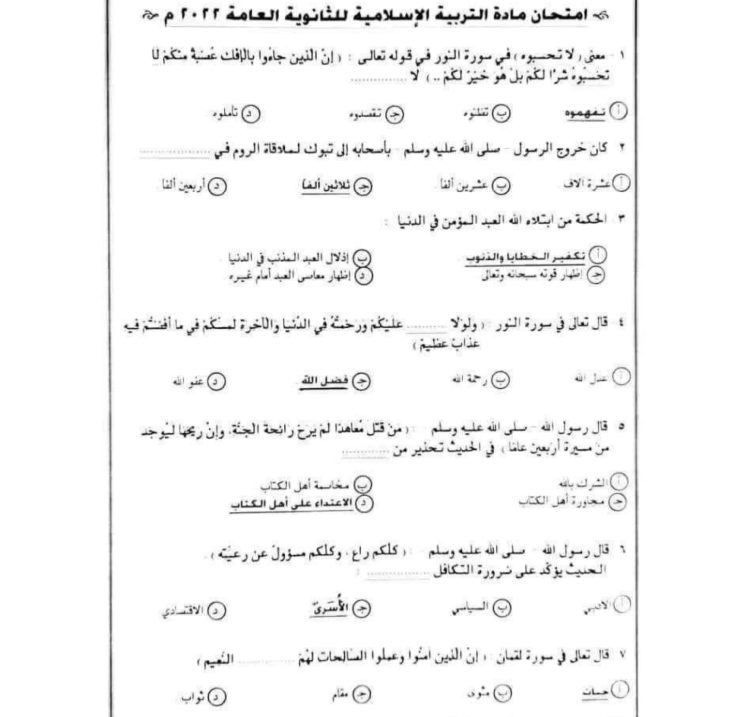 امتحان مادة التربية الإسلامية للثانوية العامة ٢٠٢٢ م
١ - معنى ( لا تحسبوه ) في سورة النور في قوله تعالى : ( إنّ الّذين جاءوا بالإفك عُصبةٌ منكُمْ لا
تحسبُوهُ شرًّا لكُمْ بلْ هُو خيْرٌ لكُمْ .. ) لا ..............
أ تفهموه ب تظنوه ج تقصدوه د تأملوه
٢ كان خروج الرسول - صلى الله عليه وسلم - بأصحابه إلى تبوك لملاقاة الروم في ..............
أ عشرة آلاف ب عشرين ألفا ج ثلاثين ألفا د أربعين ألفا
٣ الحكمة من ابتلاء الله العبد المؤمن في الدنيا :
أ تكفير الخطايا والذنوب ب إذلال العبد المذنب في الدنيا
ج إظهار قوته سبحانه وتعالى د إظهار معاصي العبد أمام غيره
٤ قال تعالى في سورة النور : ( ولوْلا .......... عليْكُمْ ورحْمتُهُ في الدُّنيا والآخرة لمسّكُمْ في ما أفضْتُمْ فيه
عذابٌ عظيمٌ )
أ عدل الله ب رحمة الله ج فضل الله د عفو الله
٥ قال رسول الله - صلى الله عليه وسلم - : ( منْ قتل مُعاهدًا لمْ يرحْ رائحة الجنّة، وإنّ ريحها ليُوجد
من مسيرة أربعين عامًا ) في الحديث تحذير من ..........
أ الشرك بالله ب مخاسمة أهل الكتاب
ج مجاورة أهل الكتاب د الاعتداء على أهل الكتاب
٦ قال رسول الله - صلى الله عليه وسلم - : ( كلّكم راعٍ ، وكلّكم مسؤولٌ عن رعيّته ) .
الحديث يؤكّد على ضرورة التكافل ............ :
أ الأدبي ب السياسي ج الأُسَريّ د الاقتصادي
٧ قال تعالى في سورة لقمان : ( إنّ الّذين آمنُوا وعملُوا الصّالحات لهُمْ ............ النّعيم )
أ جنات ب مثوى ج مقام د ثواب